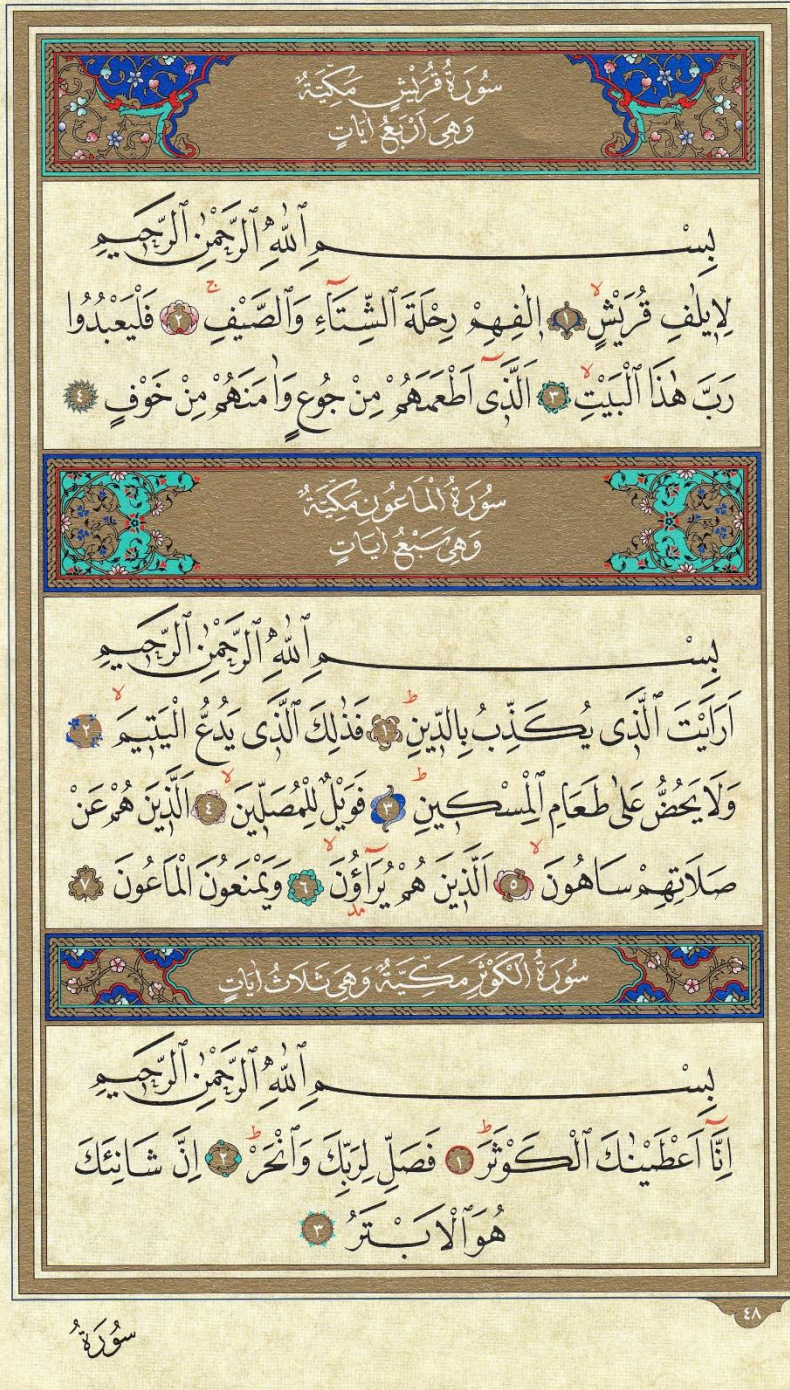 سُورَةُ قُرَيْشٍ مَكِّيَّةٌ
وَهِيَ اَرْبَعُ اٰيَاتٍ
بِسْمِ ٱللّٰهِ ٱلرَّحْمٰنِ ٱلرَّحِيمِ
لِاِيلَافِ قُرَيْشٍۙ ١ اٖلَافِهِمْ رِحْلَةَ ٱلشِّتَٓاءِ وَٱلصَّيْفِۚ ٢ فَلْيَعْبُدُوا
رَبَّ هٰذَا ٱلْبَيْتِۙ ٣ اَلَّذٖٓى اَطْعَمَهُمْ مِنْ جُوعٍ وَاٰمَنَهُمْ مِنْ خَوْفٍ ٤
سُورَةُ الْمَاعُونِ مَكِّيَّةٌ
وَهِيَ سَبْعُ اٰيَاتٍ
بِسْمِ ٱللّٰهِ ٱلرَّحْمٰنِ ٱلرَّحِيمِ
اَرَاَيْتَ ٱلَّذٖى يُكَذِّبُ بِالدّٖينِؕ ١ فَذٰلِكَ ٱلَّذٖى يَدُعُّ الْيَتٖيمَۙ ٢
وَلَا يَحُضُّ عَلٰى طَعَامِ ٱلْمِسْكٖينِؕ ٣ فَوَيْلٌ لِلْمُصَلّٖينَۙ ٤ اَلَّذٖينَ هُمْ عَنْ
صَلَاتِهِمْ سَاهُونَۙ ٥ اَلَّذٖينَ هُمْ يُرَٓاؤُ۫نَۙ ٦ وَيَمْنَعُونَ الْمَاعُونَ ٧
سُورَةُ الْكَوْثَرِ مَكِّيَّةٌ وَهِيَ ثَلَاثُ اٰيَاتٍ
بِسْمِ ٱللّٰهِ ٱلرَّحْمٰنِ ٱلرَّحِيمِ
اِنَّٓا اَعْطَيْنٰكَ ٱلْكَوْثَرَؕ ١ فَصَلِّ لِرَبِّكَ وَٱنْحَرْؕ ٢ اِنَّ شَانِئَكَ
هُوَ ٱلْاَبْتَرُ ٣
٤٨
سُورَةُ